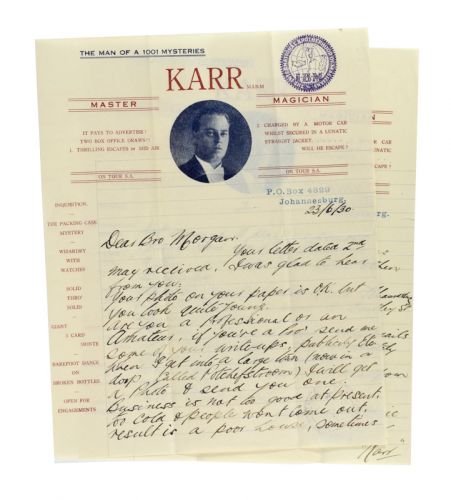 THE MAN OF A 1001 MYSTERIES
KARR M.I.B.M
MASTER
MAGICIAN
IT PAYS TO ADVERTISE!
TWO BOX OFFICE DRAWS!
THRILLING ESCAPES IN MID AIR
ON TOUR S.A.
CHARGED BY A MOTOR CAR
WHILST SECURED IN A LUNATIC
STRAIGHT JACKET
WILL HE ESCAPE?
ON TOUR S.A.
P.O.Box 4899
Johannesburg.
23/6/30
INQUISITION.
THE PACKING CASE
MYSTERY
WIZARDRY
WITH
WATCHES
SOLID
THRO'
SOLID
GIANT
3 CARD
MONTE
BAREFOOT DANCE
ON
BROKEN BOTTLES.
OPEN FOR
ENGAGEMENTS
Dear Bro Morgan.
Your letter dated 2nd
may received, I was glad to hear
from you.
Your Photo on your paper is O.K. but
you look quite young.
Are you a professional or an
Amateur, if you're a Pro send me
some of your write-ups, publicity etc
when I get into a large town (now in a
dorp called Potchefstroom) I will get
a Photo & send you one.
Business is not too good at present.
too cold & people wont come out.
result is a poor house, sometimes
"Karr"